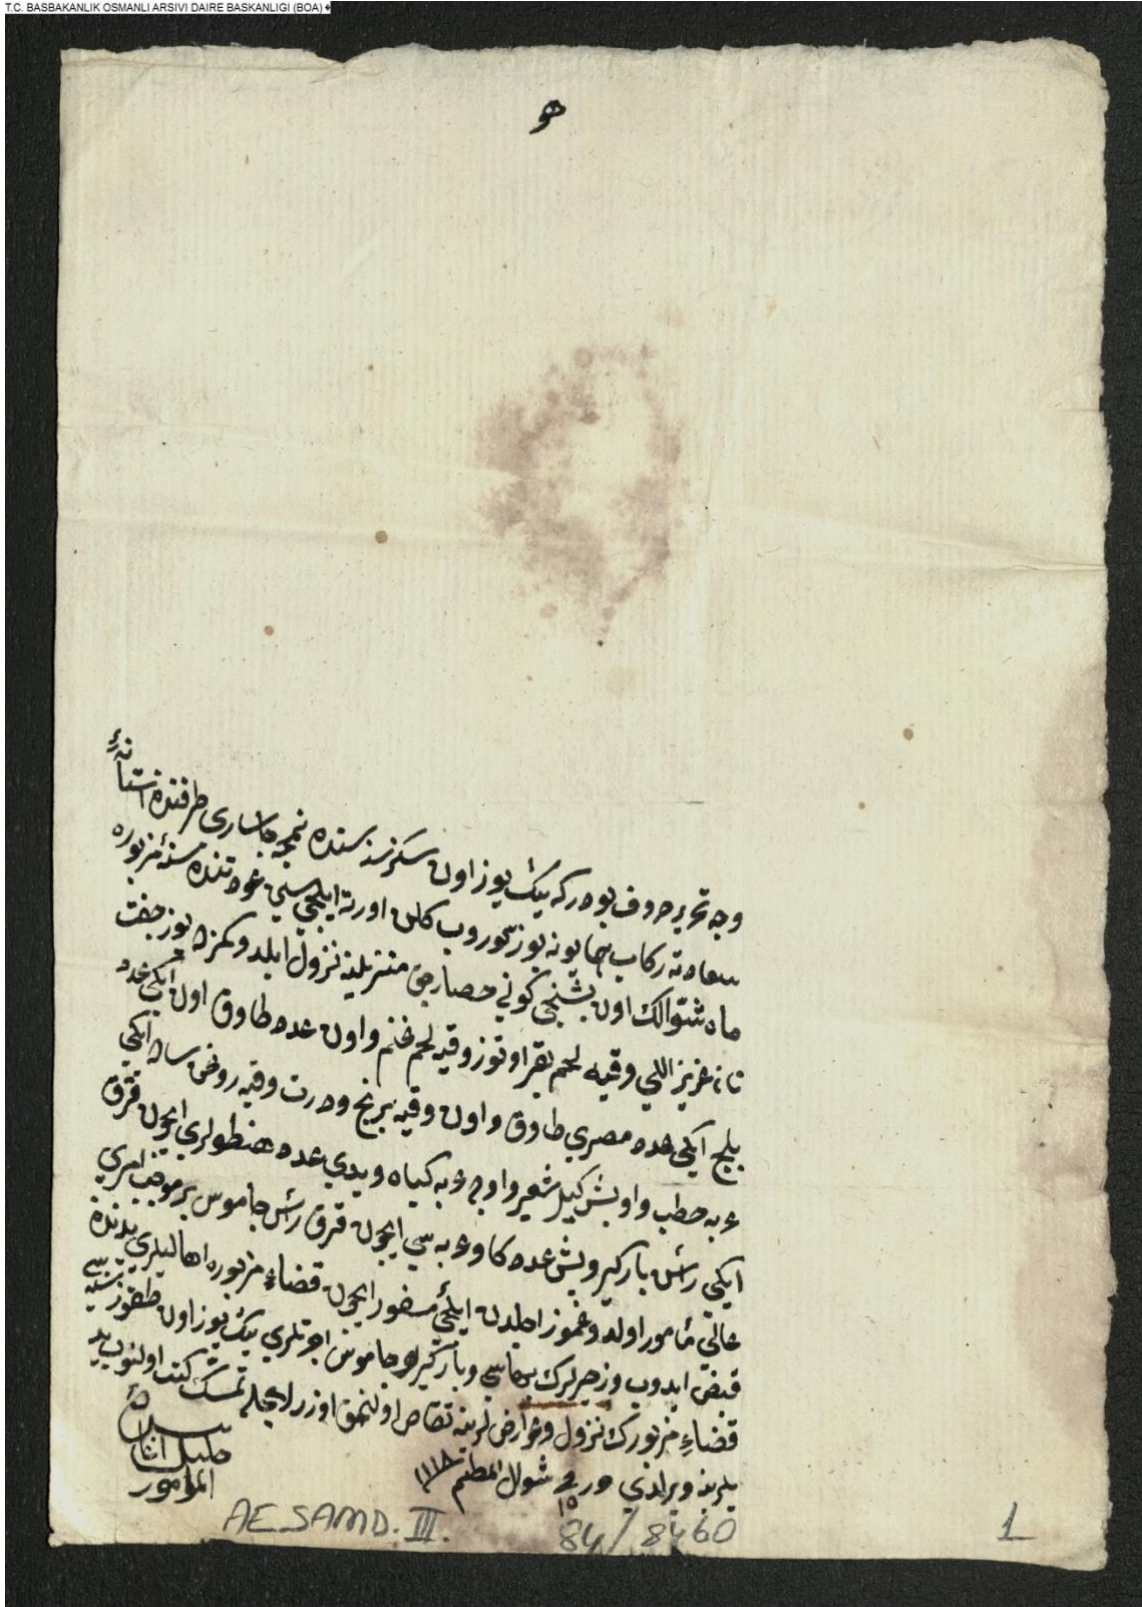 T.C. BASBAKANLIK OSMANLI ARSIVI DAIRE BASKANLIGI (BOA)
هو
وجه تحرير حروف بودركه بيك يوز اون سكز سنه سنده نمچه چاساري طرفندن آستانهٔ
سعادته ركاب همايونه يوز سوروب كلان اورته ايلچيسي عودتنده سنهٔ مزبوره
ماه شوالك اون بشنجي كوني حصارجق منزيلينه نزول ايلدوكمزده يوز جفت
نان عزيز اللي وقيه لحم بقر اوتوز وقيه لحم غنم واون عدد طاوق اون ايكي عدد
پلچ ايكي عدد مصري طاوق واون وقيه برنج ودرت وقيه روغن ساده ايكي
عربه حطب واون بش كيل شعير واوچ عربه كياه ويدي عدد هنطولري ايچون قرق
ايكي رأس باركير وبش عدد كاو عربه سي ايچون قرق رأس جاموس بر موجب امر
عالي مأمور اولدوغموز اجلدن ايلچئ مسفور ايچون قضاء مزبوره اهاليلري يدندن
قبض ايدوب وذخيرلرك بهاسي وباركير وجاموس اجرتلري بيك يوز اون طقوز سنه سي
قضاء مزبورك نزول وعوارضلرينه تقاص اولنمق اوزره ايجله تمسك كتب اولنوب يد
يلرينه ويرلدي حرر في ١٥ شوال المعظم ١١١٨
بنده
خليل اغا
المأمور
AE SAMD. III. 84/8460
1